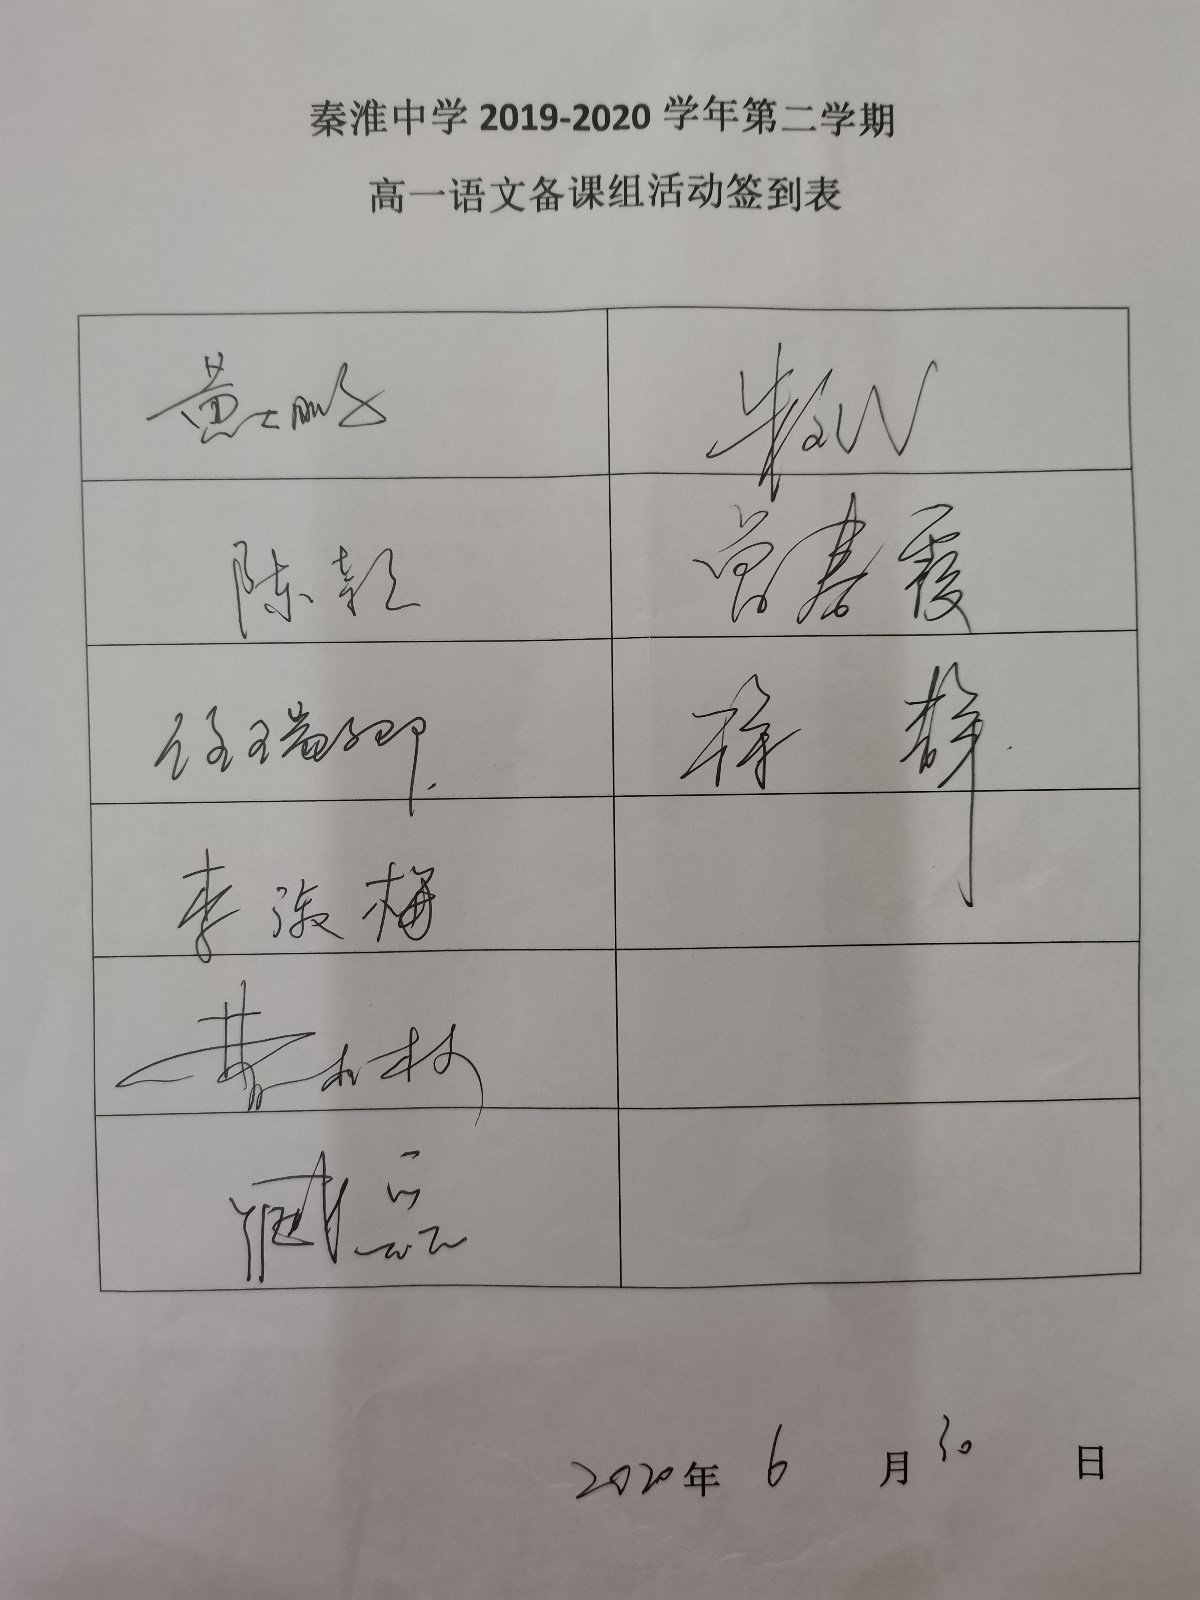 秦淮中学 2019-2020 学年第二学期
高一语文备课组活动签到表
黄士鹏
陈颖
曾春霞
徐静
李淑梅
臧磊
2020年 6 月 30 日